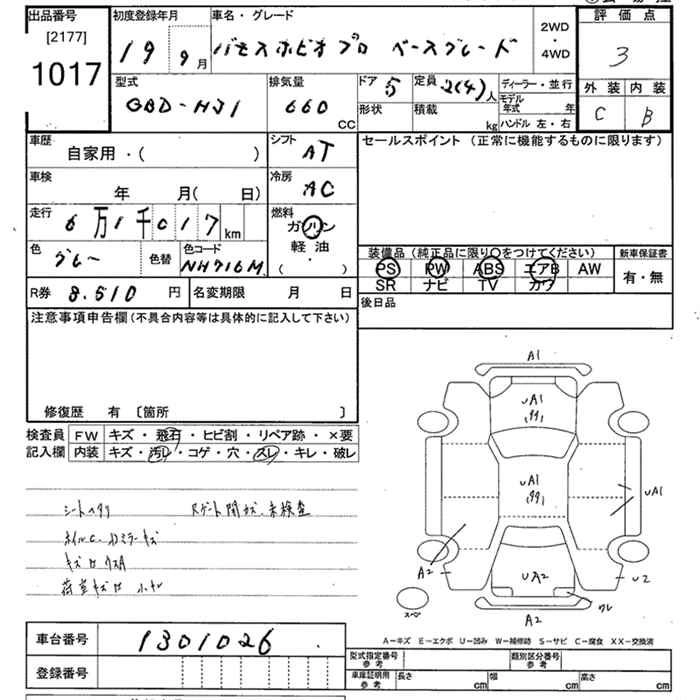 出品番号 初度登録年月 車名・グレード 評価点
[2177]
1017
19 9月 バモスホビオプロ ベースグレード 2WD・4WD 3
型式 排気量 ドア 5 定員 2(4)人 ディーラー・並行 外装 内装
GBD-HJ1 660 CC 形状 積載 kg モデル年式 年 C B
ハンドル 左・右
車歴 シフト セールスポイント (正常に機能するものに限ります)
自家用・( ) AT
車検 冷房
年 月( 日) AC
走行 燃料
6万1千017km ガソリン
軽油
( )
色 グレー 色替 色コード NH716M
装備品(純正品に限り○をつけてください) 新車保証書
PS PW ABS エアB AW 有・無
SR ナビ TV カワ
R券 8.510円 名変期限 月 日 後日品
注意事項申告欄(不具合内容等は具体的に記入して下さい)
修復歴 有 〔箇所 〕
検査員 FW キズ・飛石・ヒビ割・リペア跡・×要
記入欄 内装 キズ・汚レ・コゲ・穴・スレ・キレ・破レ
シートヘタリ Rゲート開かず、未検査
荷室キズ凹
A1
UA1
UA1
UA1
A2
UA2
U2
ワレ
A2
スペア
A-キズ E-エクボ U-凹み W-補修跡 S-サビ C-腐食 XX-交換済
車台番号 1301026
登録番号
型式指定番号 参考 類別区分番号 参考
車庫証明用 参考 長さ cm 幅 cm 高さ cm